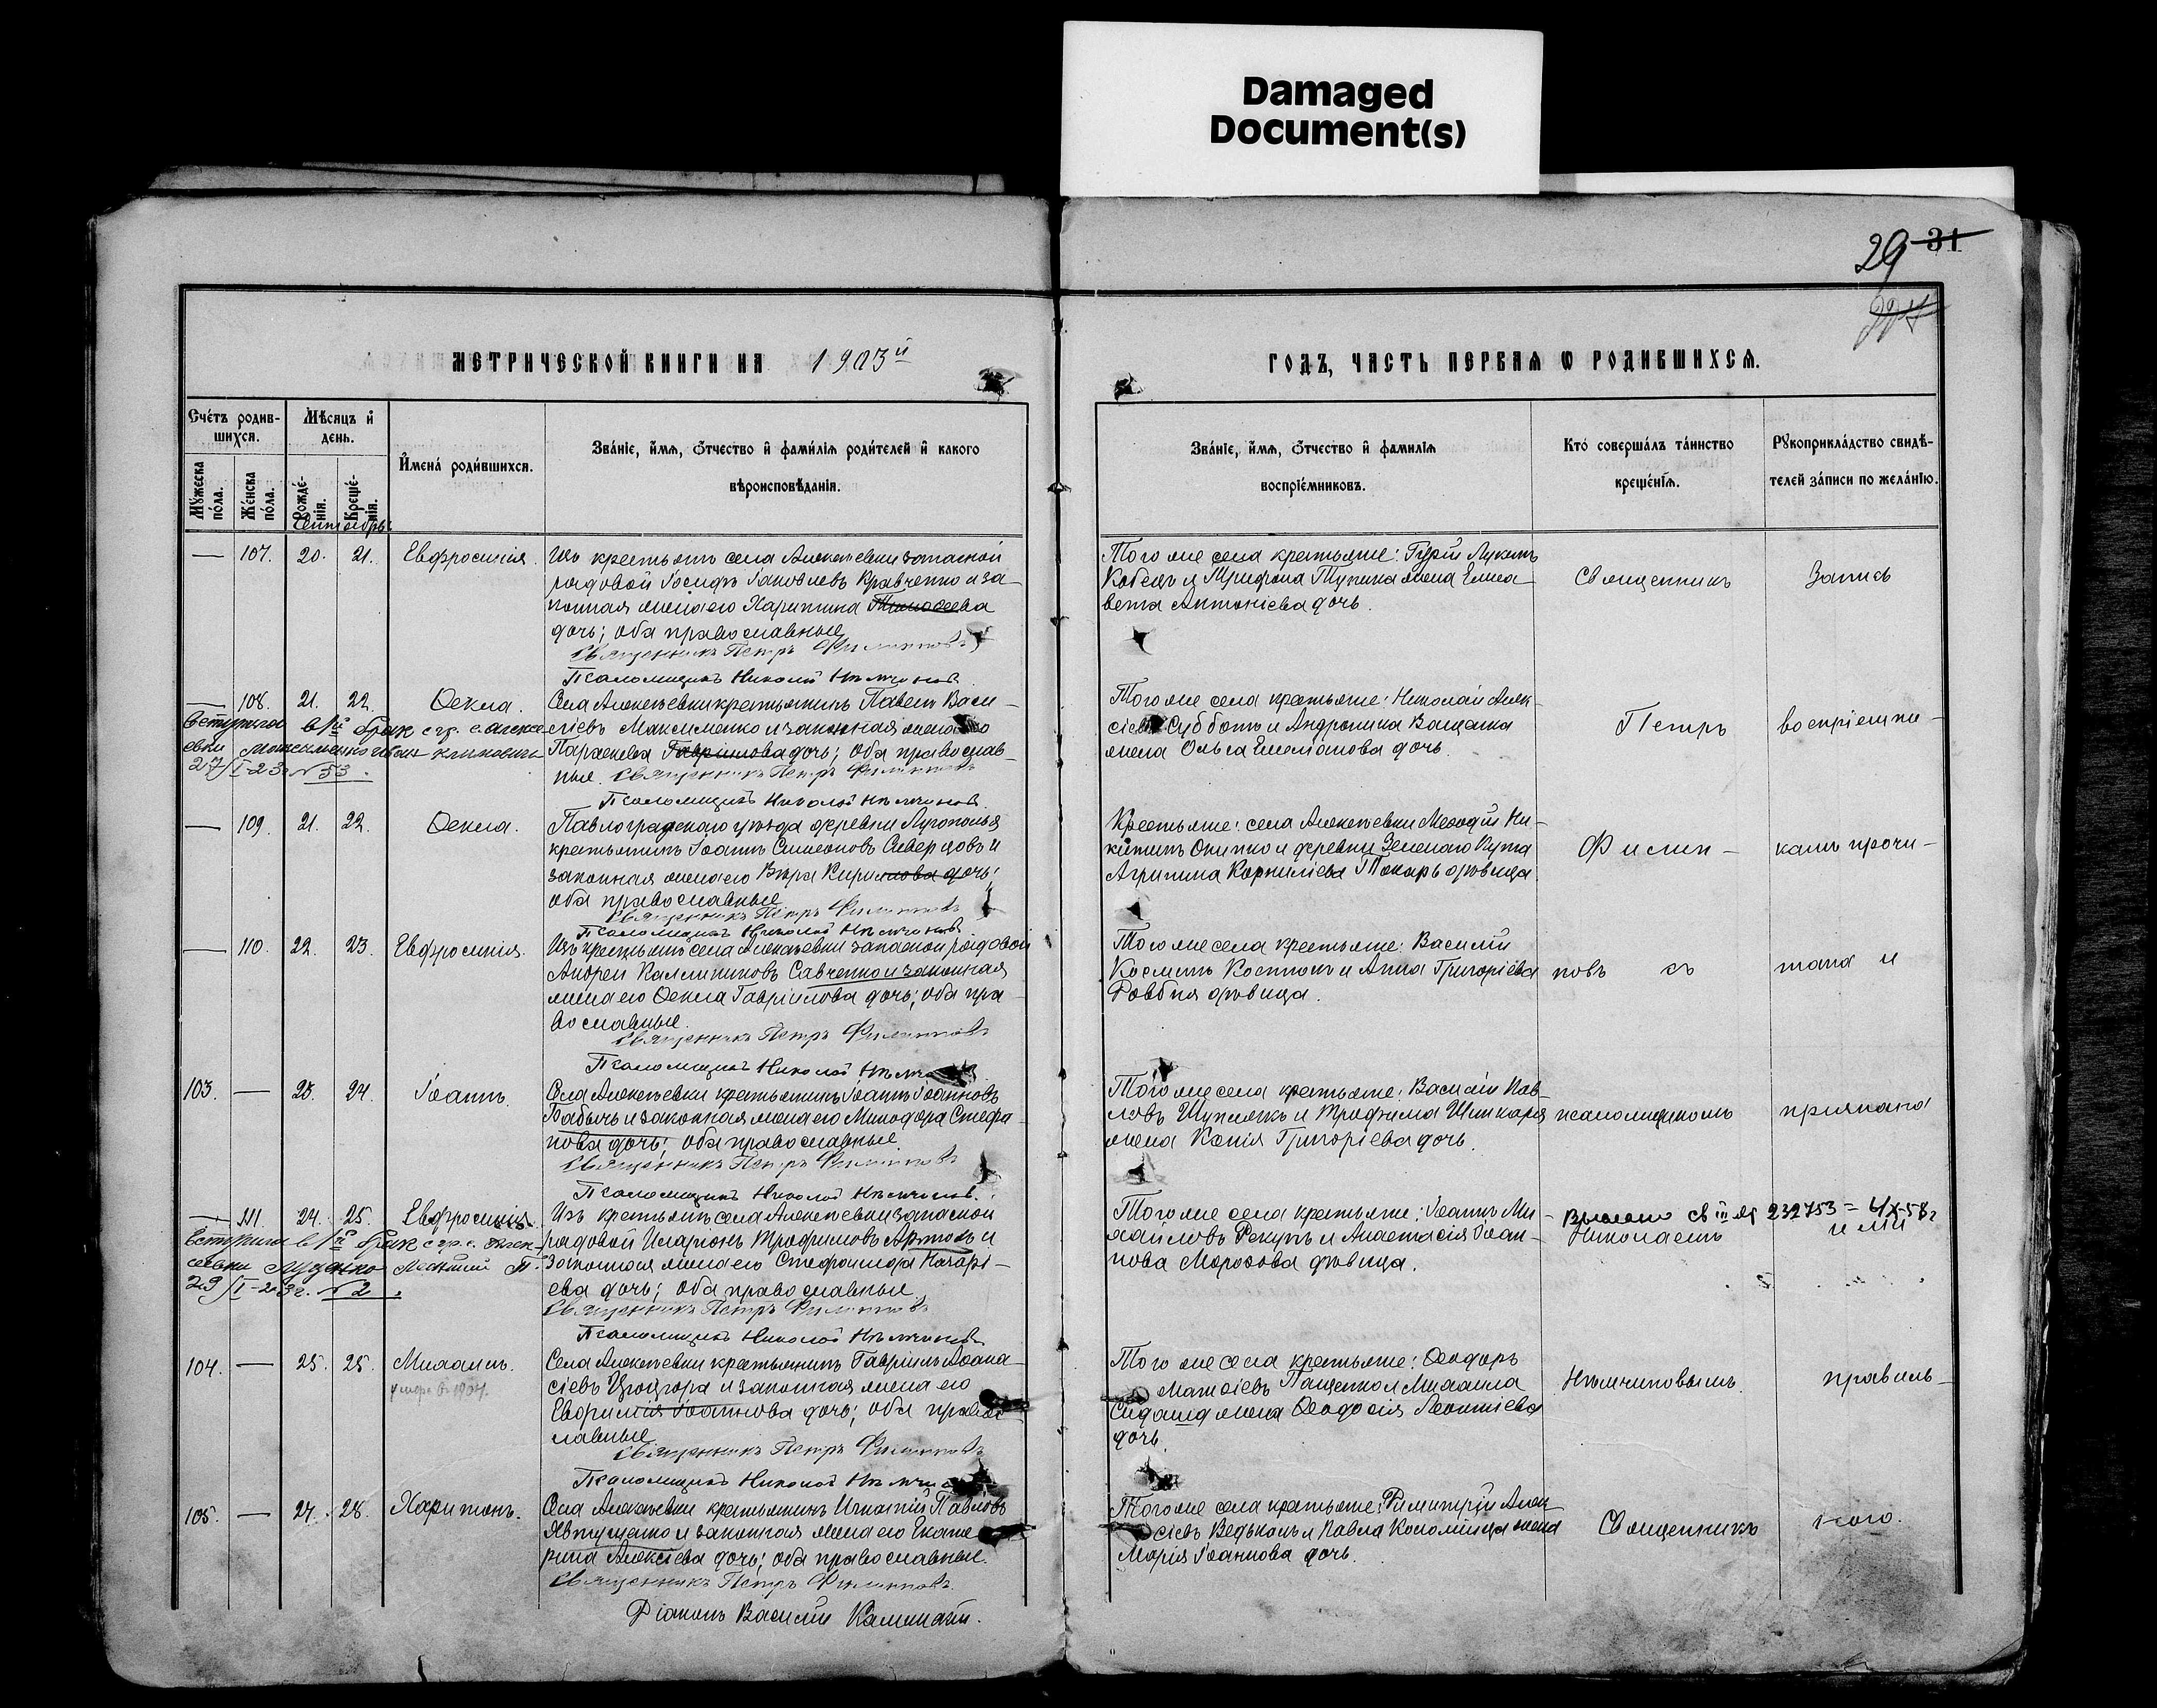 Damaged
Document(s)
29 31
МЕТРИЧЕСКОЙ КНИГИ НА 1903й
ГОДЪ, ЧАСТЬ ПЕРВАЯ Ѡ РОДИВШИХСЯ.
Счетъ родив-
шихся.
Мужеска пола.
Женска пола.
Мѣсяцъ и
день.
Рожде-
нія.
Креще-
нія.
Имена родившихся.
Званіе, имя, отчество и фамилія родителей и какого
вѣроисповѣданія.
Званіе, имя, отчество и фамилія
воспріемниковъ.
Кто совершалъ таинство
крещенія.
Рукоприкладство свидѣ-
телей записи по желанію.
Сентябрь
— 107. 20. 21. Евфросинія.
Изъ крестьянъ села Алексѣевки запасной
рядовой Іосифъ Іаковлевъ Кравченко и за-
конная жена его Харитина Тимоѳеева
дочь; оба православные
Священникъ Петръ Филипповъ
Псаломщикъ Николай Нѣмчиновъ
Того же села крестьяне: Гурій Лукинъ
Кобецъ и Трифона Тупика жена Елиса-
вета Антоніева дочь.
Священникъ
Запись
— 108. 21. 22. Ѳекла.
Села Алексѣевки крестьянинъ Павелъ Васи-
ліевъ Максименко и законная жена его
Параскева Гавріилова дочь; оба православ-
ные. Священникъ Петръ Филипповъ
Псаломщикъ Николай Нѣмчиновъ
Вступила в 1й брак с гр. с. Алексе
евки
27/I-23 №53.
Того же села крестьяне: Николай Алек-
сіевъ Субботъ и Андроника Ващенка
жена Ольга дочь.
Петръ
воспріемни-
— 109. 21. 22. Ѳекла.
Павлоградскаго уѣзда деревни Лугополья
крестьянинъ Іоаннъ Симеоновъ Сиверцовъ и
законная жена его Вѣра Кирилова дочь;
оба православные
Священникъ Петръ Филипповъ
Псаломщикъ Николай Нѣмчиновъ
Крестьяне: села Алексѣевки Меѳодій Ни-
китинъ Онипко и деревни Зеленаго Кута
Агрипина Корниліева Токарь дѣвица
Филип-
камъ прочи-
— 110. 22. 23. Евфросинія.
Изъ крестьянъ села Алексѣевки запасной рядовой
Андрей Каллиниковъ Савченко и законная
жена его Ѳекла Гавріилова дочь; оба пра-
вославные.
Священникъ Петръ Филипповъ
Псаломщикъ Николай
Того же села крестьяне: Василій
Косминъ Костюкъ и Анна Григоріева
Ровбня дѣвица.
повъ съ
тана и
103. — 23. 24. Іоаннъ
Села Алексѣевки крестьянинъ Іоаннъ Іоанновъ
Бабычъ и законная жена его Минодора Стефа-
нова дочь; оба православные
Священникъ Петръ Филипповъ
Псаломщикъ Николай Нѣмчиновъ.
Того же села крестьяне: Василій Пав-
ловъ и Трофима Шинкаря
жена Ксенія Григоріева дочь.
псаломщикомъ
— 111. 24. 25. Евфросинія.
Изъ крестьянъ села Алексѣевки запасной
рядовой Иларіонъ Трофимовъ и
законная жена его Стефанида Назарі-
ева дочь; оба православные.
Священникъ Петръ Филипповъ
Псаломщикъ Николай Нѣмчиновъ
Вступила в 1й брак с гр. с. Алек-
сеевки
29/I-23г. №2
Того же села крестьяне: Іоаннъ Ми-
хайловъ Рекунъ и Анастасія Іоан-
нова Морозова дѣвица.
св III 232753
Николаемъ
104. — 25. 25. Михаилъ.
умеръ в 1907.
Села Алексѣевки крестьянинъ Гавріилъ Аѳана-
сіевъ и законная жена его
Евфимія Іоаннова дочь; оба правос-
лавные
Священникъ Петръ Филипповъ
Псаломщикъ Николай
Того же села крестьяне: Ѳеодоръ
Матѳіевъ Пащенко и Михаила
жена Ѳеодосія Леонтіева
дочь.
Нѣмчиновымъ.
правиль-
105. — 27. 28. Харитонъ.
Села Алексѣевки крестьянинъ Игнатій Павловъ
и законная жена его Екате-
рина Алексіева дочь; оба православные.
Священникъ Петръ Филипповъ.
Діаконъ Василій
Того же села крестьяне: Димитрій Алек-
сіевъ Ведьконъ и Павла Коломійца жена
Марія Іоаннова дочь.
Священникъ